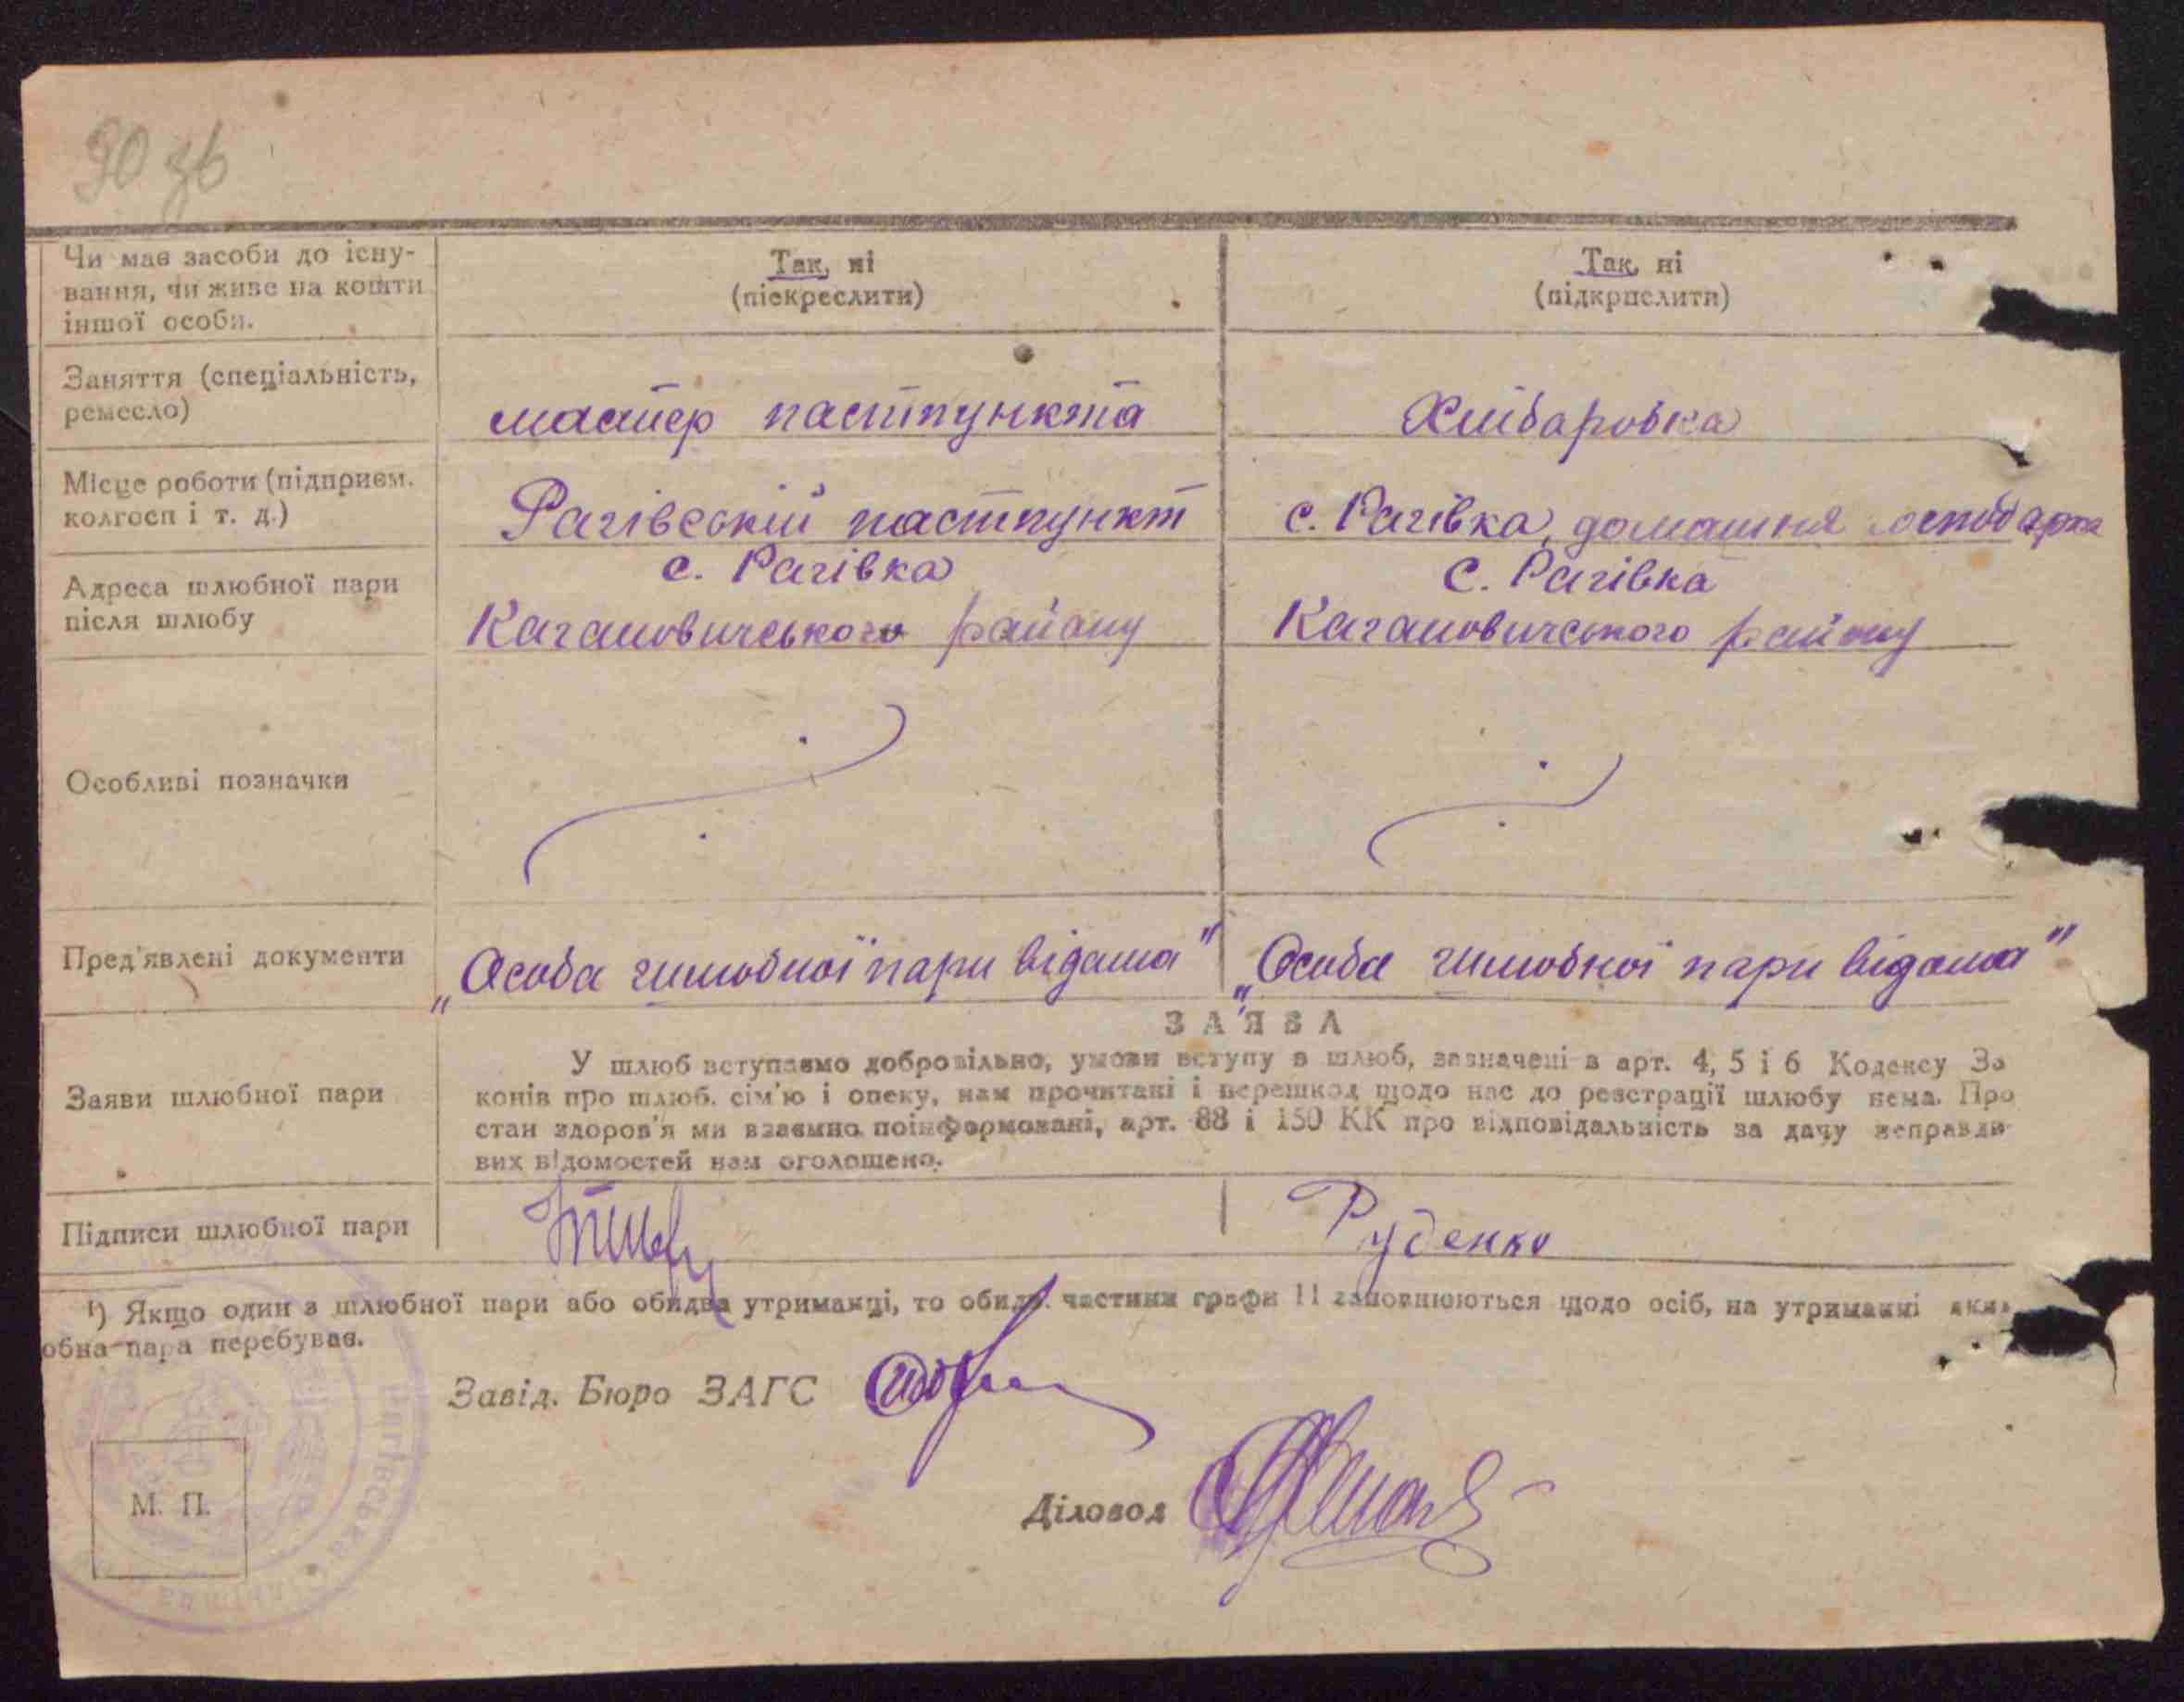 90 зв
Чи має засоби до існу-
вання, чи живе на кошти
іншої особи.
Так, ні
(піекреслити)
Так, ні
(підкрпслити)
Заняття (спеціальність,
ремесло)
мастер пастпункта
Хлібаровка
Місце роботи (підприєм.
колгосп і т. д.)
Рагівський пастпункт
с. Рагівка, домашня господарка
Адреса шлюбної пари
після шлюбу
с. Рагівка
Кагановичського району
с. Рагівка
Кагановичського району
Особливі позначки
Пред'явлені документи
„Особа шлюбної пари відома"
„Особа шлюбної пари відома"
ЗАЯВА
Заяви шлюбної пари
У шлюб вступаємо добровільно, умови вступу в шлюб, зазначені в арт. 4, 5 і 6 Кодексу За
конів про шлюб, сім'ю і опеку, нам прочитані і перешкод щодо нас до реєстрації шлюбу нема. Про
стан здоров'я ми взаємно поінформовані, арт. 88 і 150 КК про відповідальність за дачу неправди
вих відомостей нам оголошено.
Підписи шлюбної пари
Руденко
¹) Якщо один з шлюбної пари або обидва утриманці, то обидві частини графи 11 заповнюються щодо осіб, на утриманні яких
обна пара перебуває.
Завід. Бюро ЗАГС
Діловод
М. П.
Рагівська